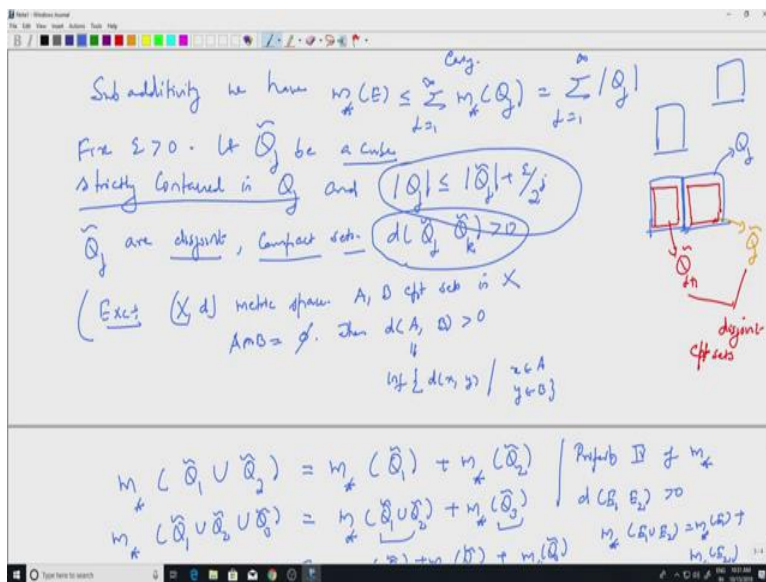 Note1 - Windows Journal
File Edit View Insert Actions Tools Help
Cong.
Sub additivity we have m_*(E) ≤ ∑_{j=1}^∞ m_*(Q_j) = ∑_{j=1}^∞ |Q_j|
Fix ε > 0. Let Q̃_j be a cube
strictly contained in Q_j and |Q_j| ≤ |Q̃_j| + ε/2^j
Q̃_j are disjoint, compact sets. d(Q̃_j, Q̃_k) > 0
Q_j
Q̃_j
Q̃_{j+1}
disjoint
cpt sets
(Exc: (X, d) metric space A, B cpt sets in X
A∩B = ∅. Then d(A, B) > 0
Inf { d(x, y) / x∈A
y∈B }
m_*(Q̃_1 ∪ Q̃_2) = m_*(Q̃_1) + m_*(Q̃_2)
m_*(Q̃_1 ∪ Q̃_2 ∪ Q̃_3) = m_*(Q̃_1 ∪ Q̃_2) + m_*(Q̃_3)
Property IV of m_*
d(E_1, E_2) > 0
m_*(E_1 ∪ E_2) = m_*(E_1) +
m_*(E_2)
Type here to search
ENG 10:31 AM